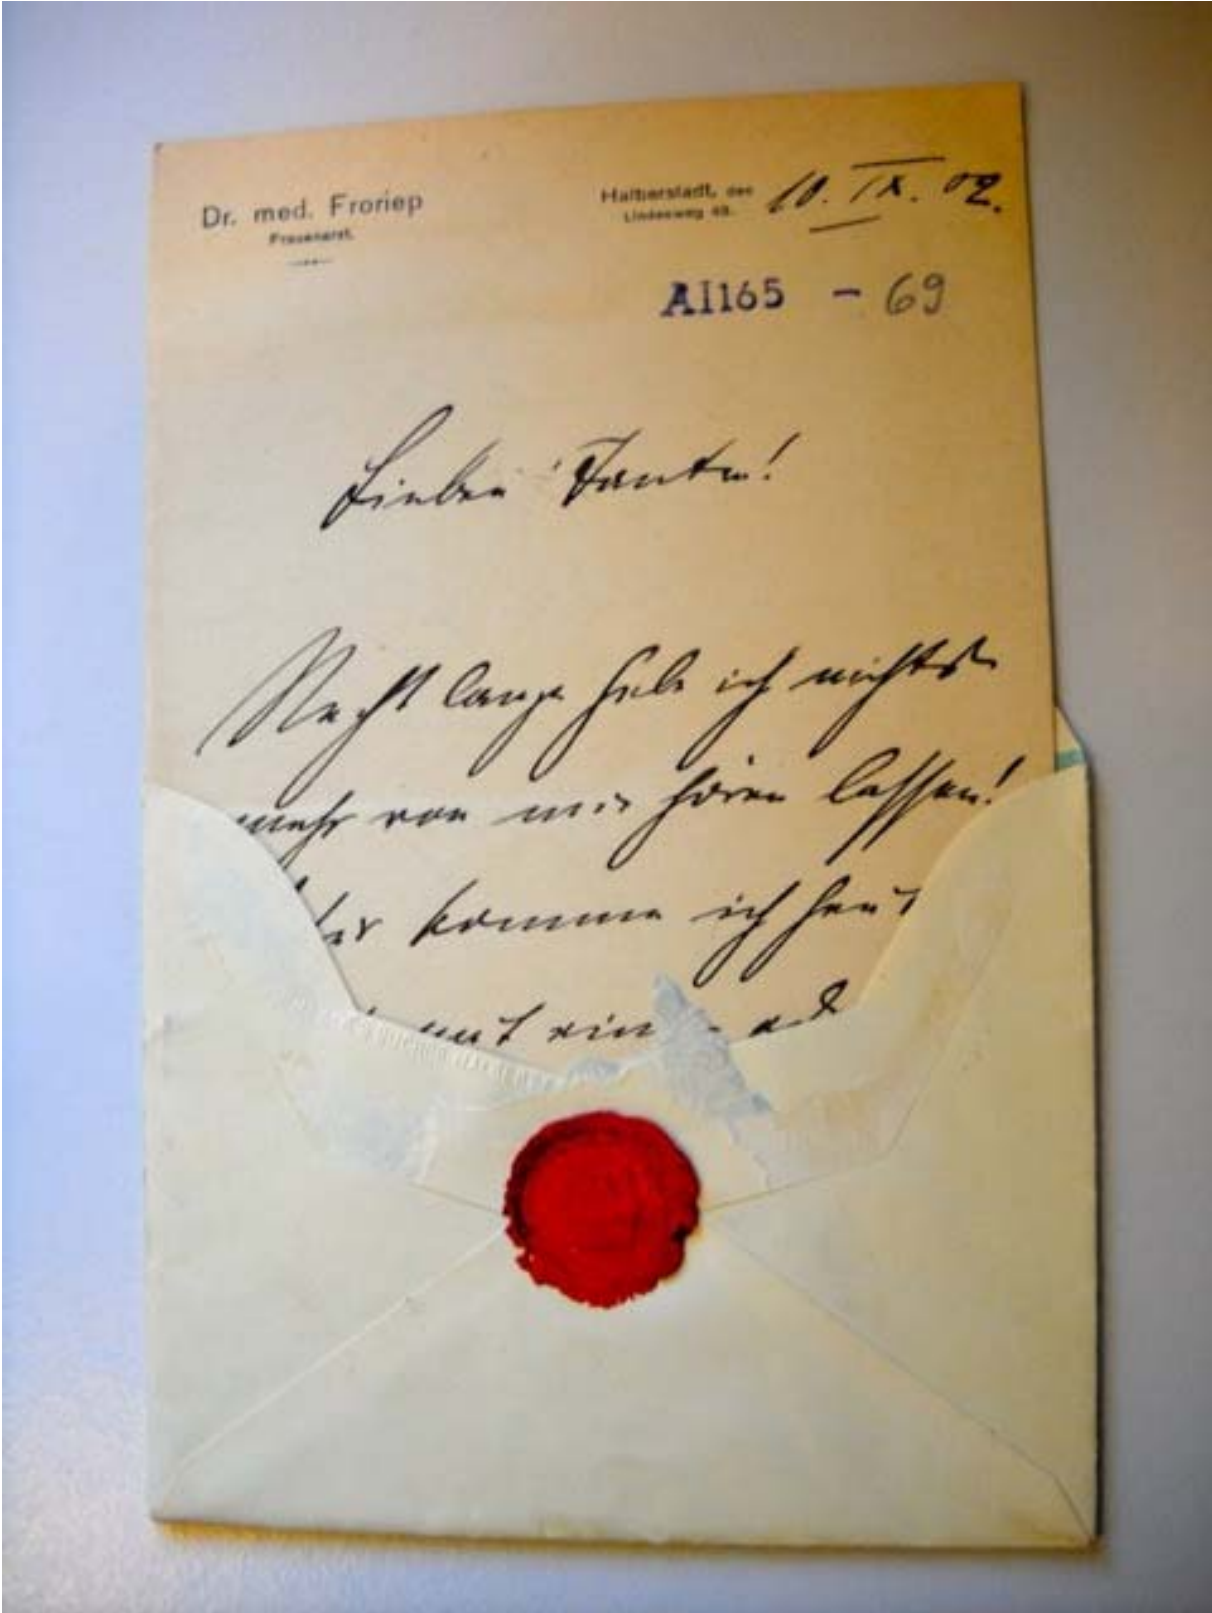 Dr. med. Froriep
Frauenarzt.
Halberstadt, den 10. IX. 02.
Lindenweg 48.
AI165 - 69
Liebe Tante!
Recht lange habe ich nichts
mehr von mir hören lassen!
komme ich heut
mit ein